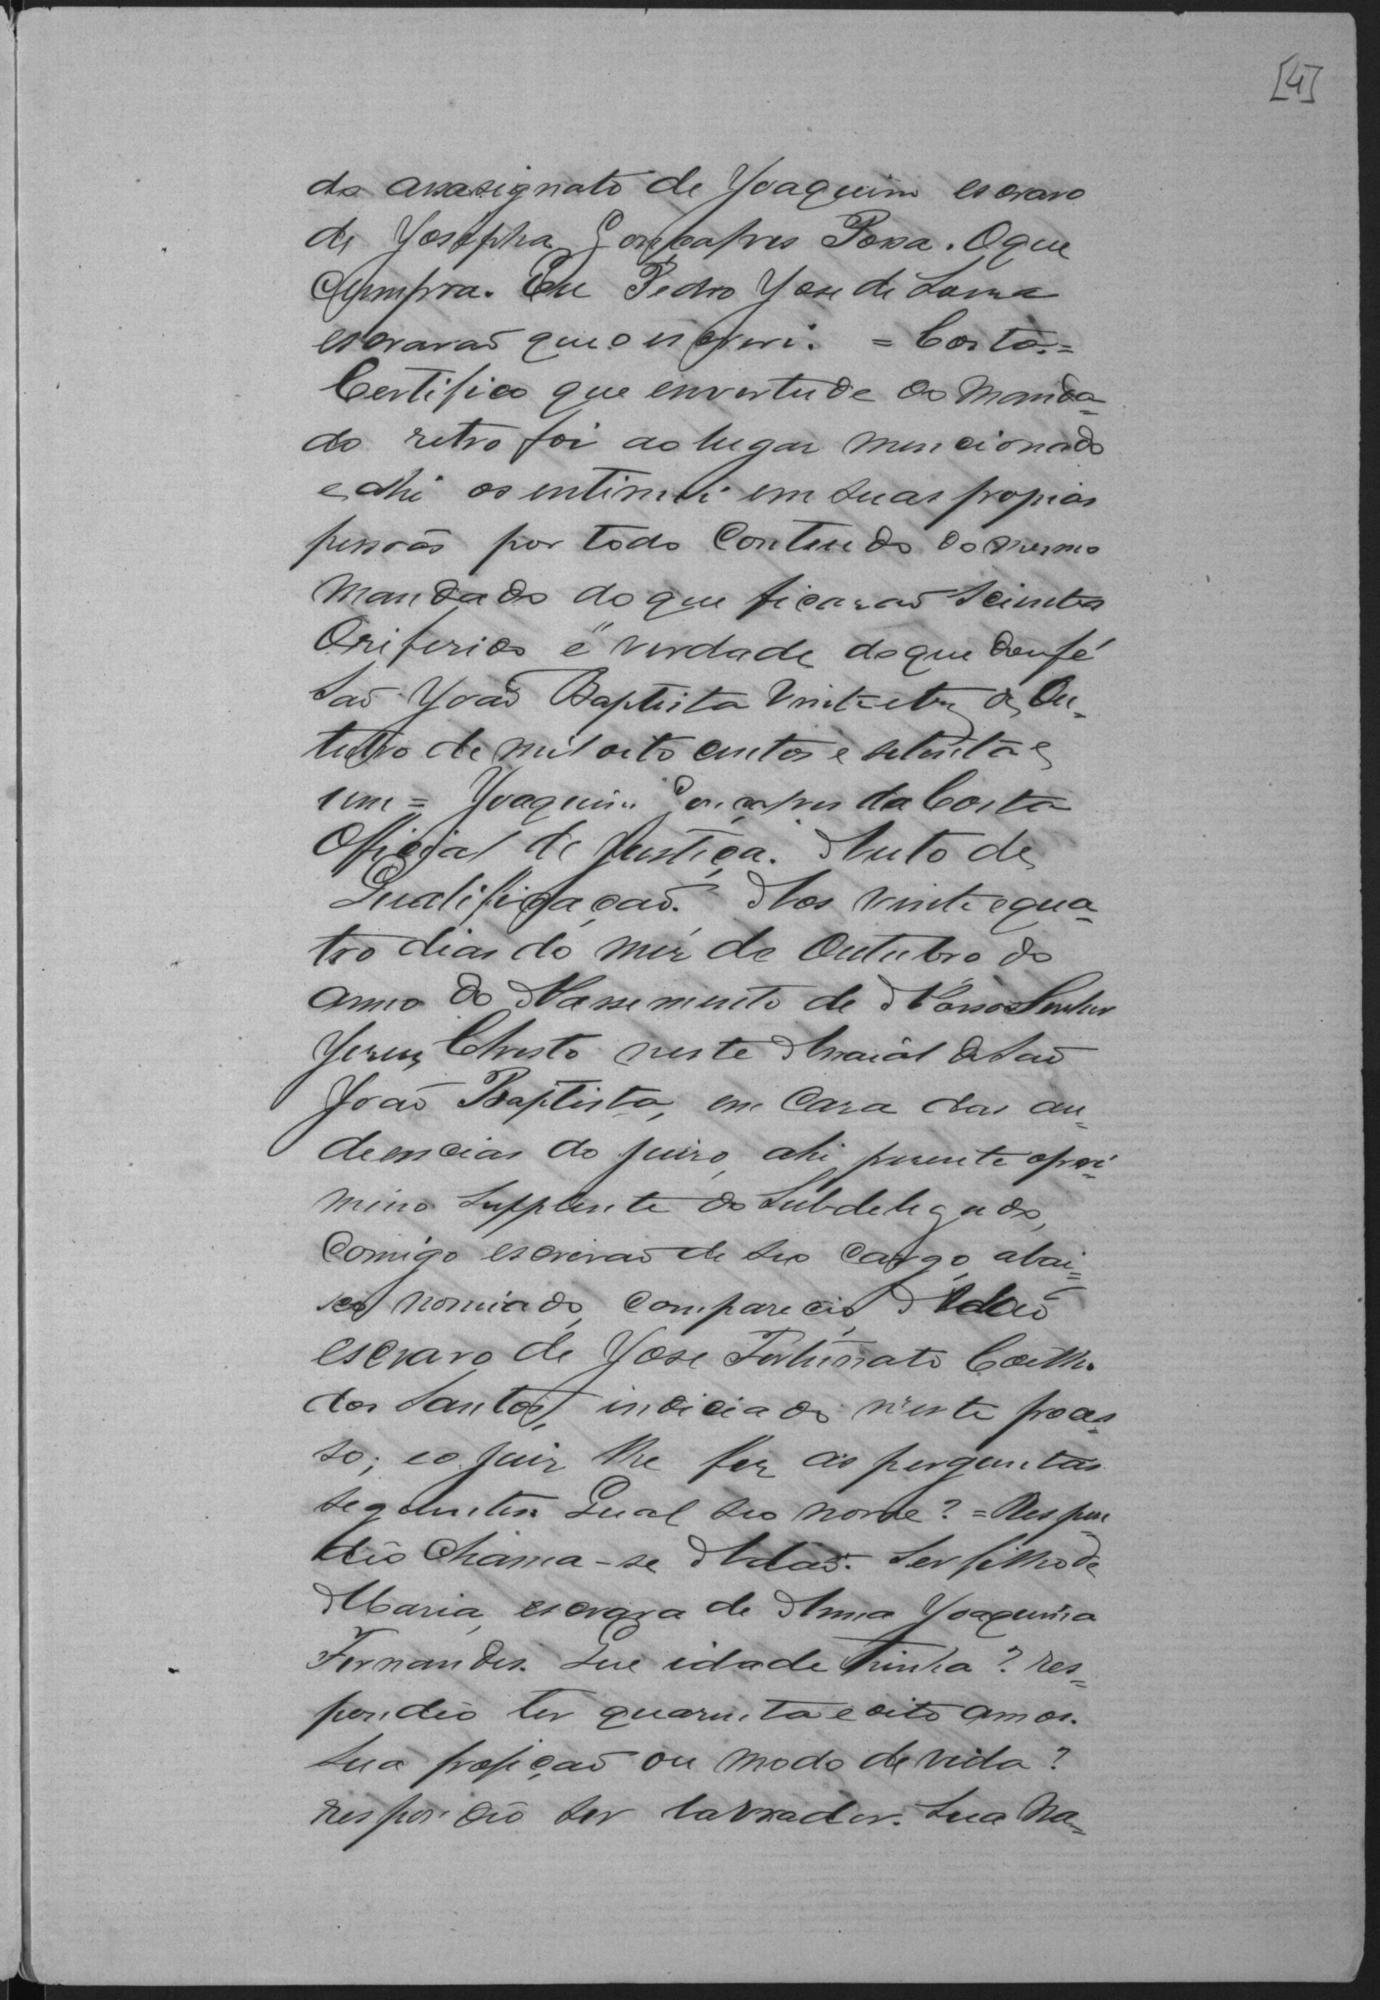 [4]
do assasignato de Joaquim escravo
de Josepha Gonçalves Possa. O que
Cumpra. Eu Pedro Jose de
escravaõ que o escrevi. = Costa. =
Certifico que envertude do Manda-
do retro foi ao lugar mencionado
e ahi os entimei em suas propias
pessoâs por todo Conteudo do mesmo
Mandado do que ficaraõ Scientes
O riferido é verdade do que dou fé
Saõ Joaõ Baptista Vinte e tres de Ou-
tubro de mil oito centos e setenta e
um = Joaquim Gonçalves da Costa
Official de Justiça. Auto de
Qualificaçaõ. Aos vinte e qua-
tro dias do mez de Outubro do
anno do Nassemento de Nosso Senhor
Jezus Christo neste Arraial de Saõ
Joaõ Baptista, em Caza das au-
diencias do juizo, ahi prezente o pri-
meiro Supplente do Subdelegado,
Comigo escrivaõ de seo Cargo abai-
xo nomiado, compareceo Adaõ
escravo de Jose Fortunato Coelho
dos Santos, indiciado n'este proces-
so; e o Juiz lhe fez as perguntas
seguintes. Qual seo nome? = Respon
deo Chama-se Adaõ. Ser filho de
Maria, escrava de Anna Joaquina
Fernandes. Que idade tinha? res-
pondeo ter quarenta e oito annos.
Sua profiçaõ ou modo de vida?
respondeo ser lavrador. Sua Na-